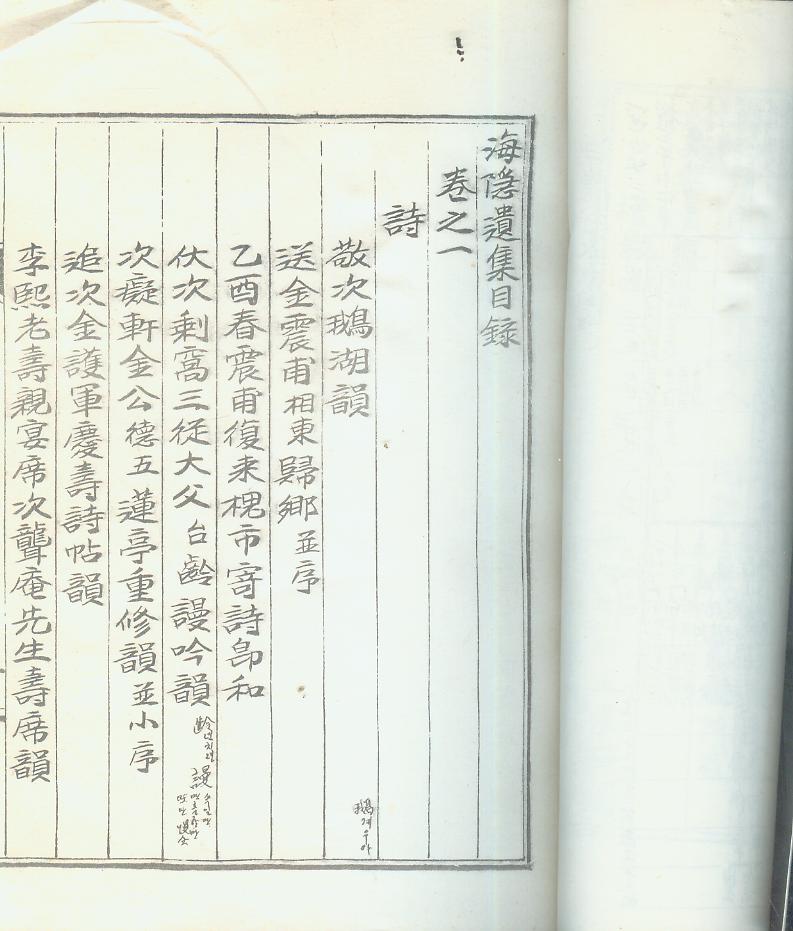 海隱遺集目錄
卷之一
詩
敬次鵝湖韻
送金震甫相東歸鄉並序
乙酉春震甫復来槐市寄詩卽和
伏次剩窩三従大父台齡謾吟韻
次癡軒金公德五蓮亭重修韻並小序
追次金護軍慶壽詩帖韻
李熙老壽親宴席次聾庵先生壽席韻
鵝 거우아